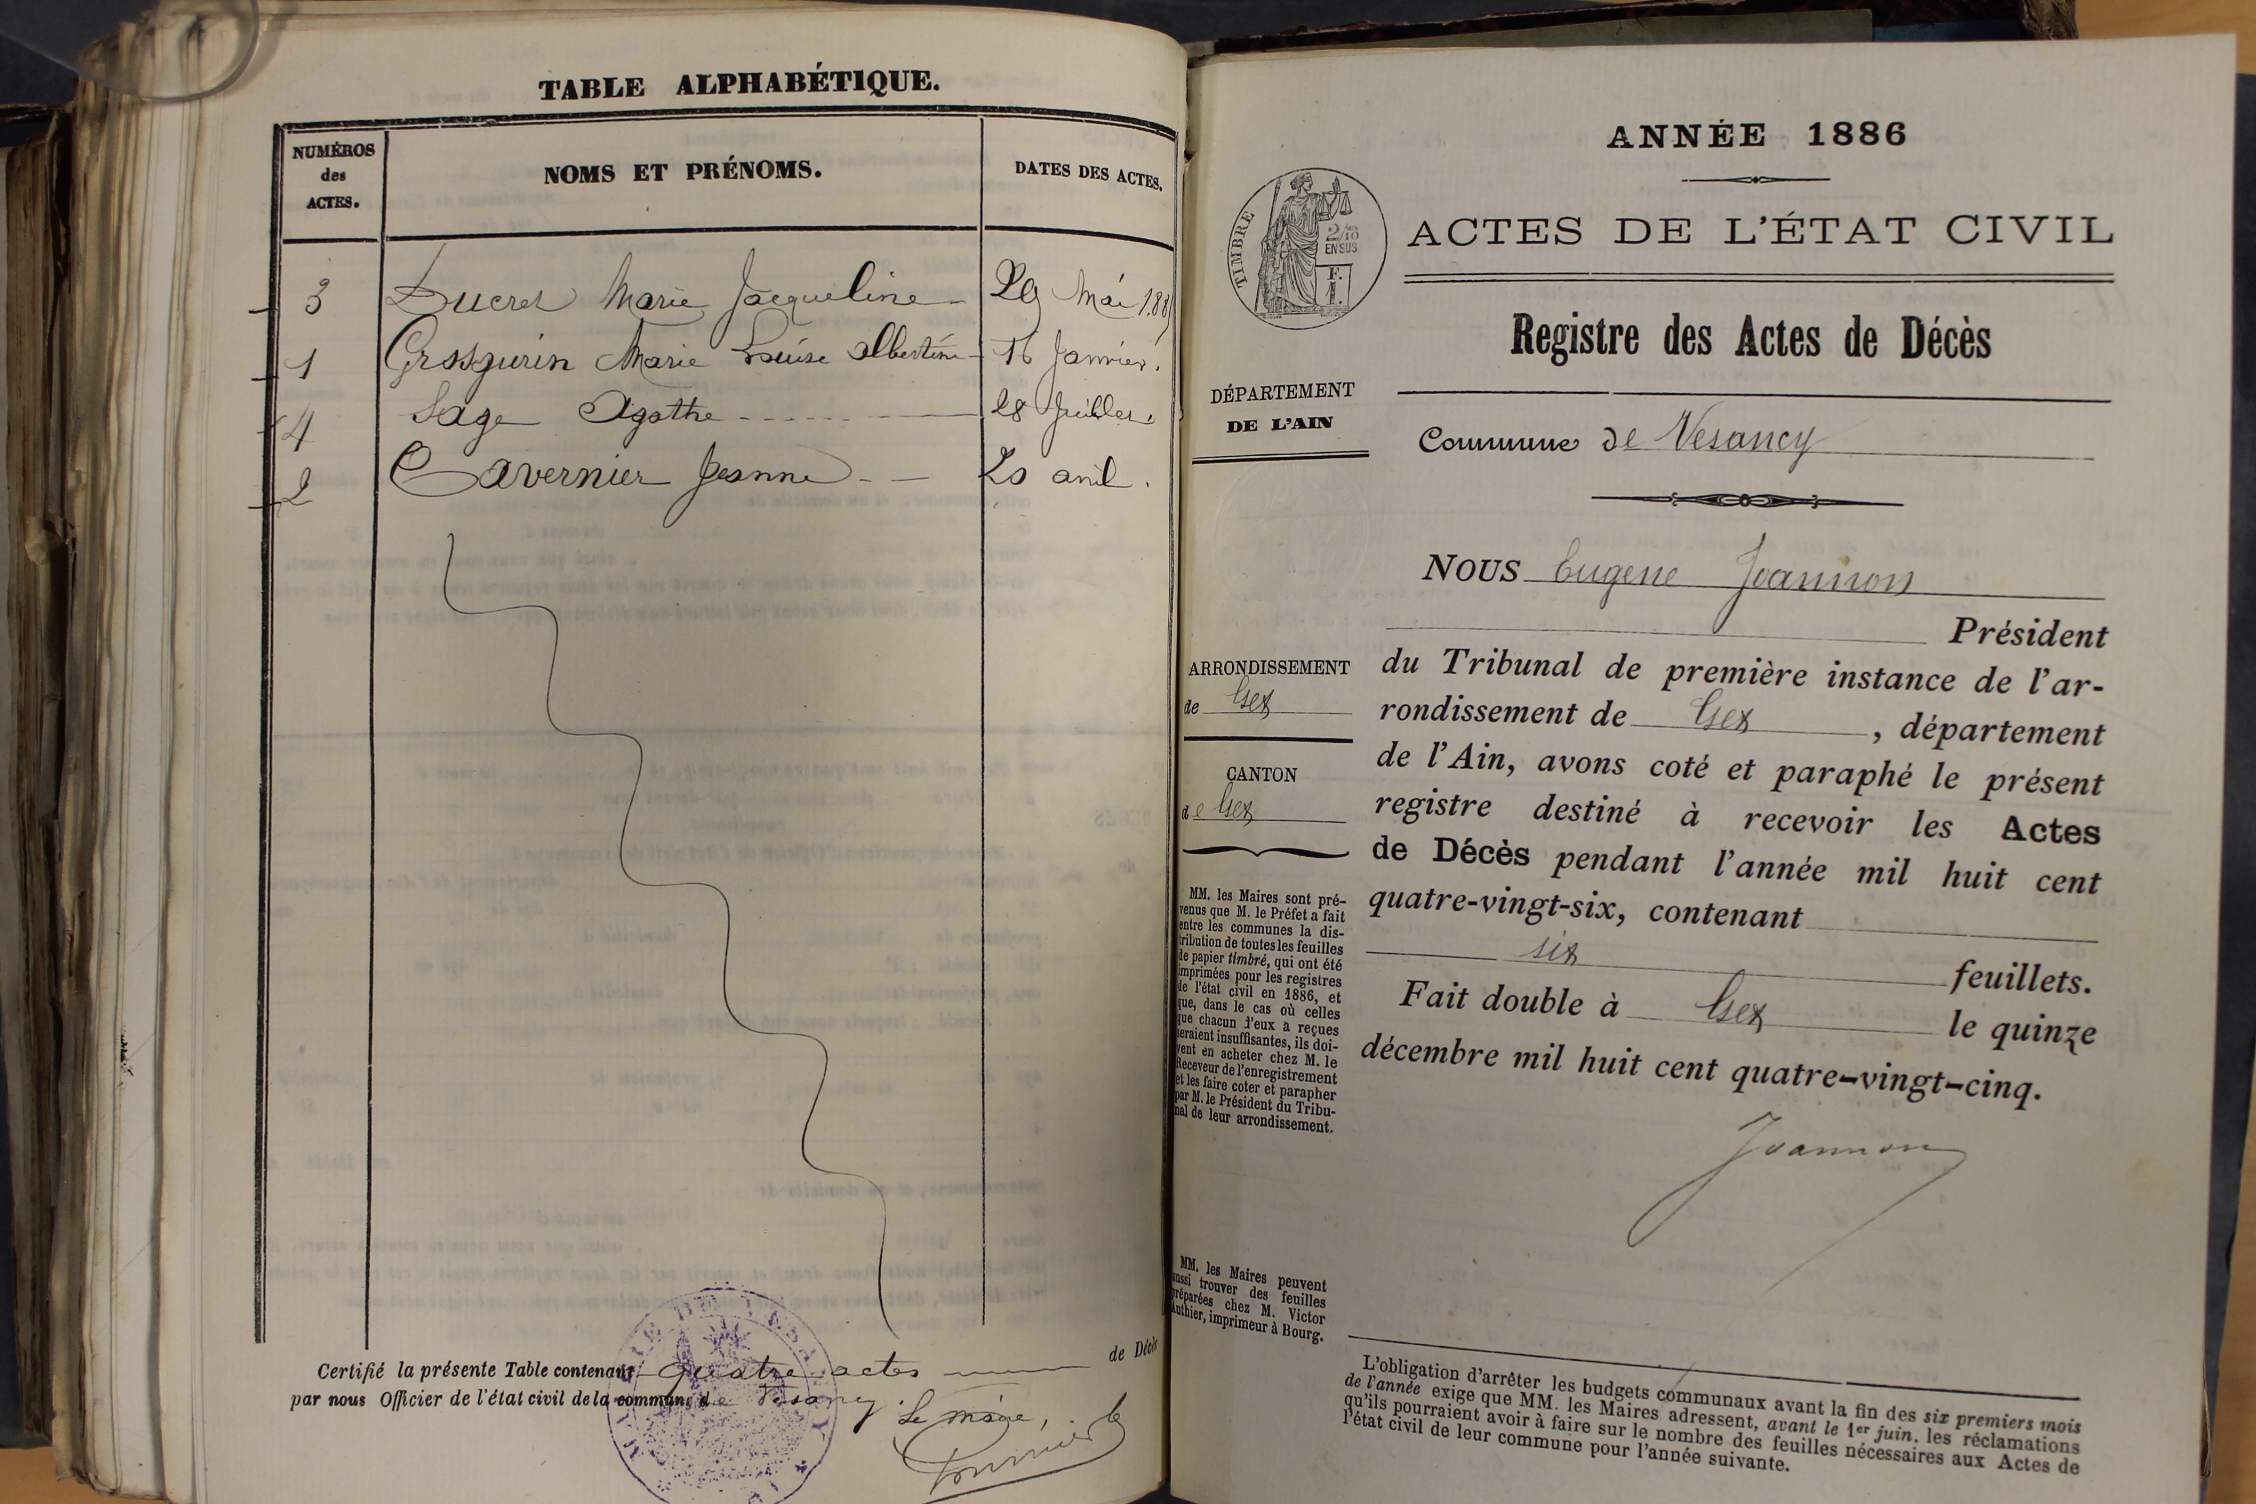 TABLE ALPHABÉTIQUE.
NUMÉROS
des
ACTES.
NOMS ET PRÉNOMS.
DATES DES ACTES.
3 Ducret Marie Jacqueline 29 Mai 188
1 Grosgurin Marie Louise Albertine 16 Janvier.
4 Sage Agathe 28 Juillet.
2 Tavernier Jeanne 20 avril.
Certifié la présente Table contenant quatre actes de Décès
par nous Officier de l'état civil de la commune de Vesancy. Le maire,
ANNÉE 1886
TIMBRE
2/10
EN SUS
F.
1.
ACTES DE L'ÉTAT CIVIL
Registre des Actes de Décès
DÉPARTEMENT
DE L'AIN
Commune de Vesancy
NOUS Eugene Joannon
Président
du Tribunal de première instance de l'ar-
rondissement de Gex, département
de l'Ain, avons coté et paraphé le présent
registre destiné à recevoir les Actes
de Décès pendant l'année mil huit cent
quatre-vingt-six, contenant
six feuillets.
Fait double à Gex le quinze
décembre mil huit cent quatre-vingt-cinq.
Joannon
ARRONDISSEMENT
de Gex
CANTON
de Gex
MM. les Maires sont pré-
venus que M. le Préfet a fait
entre les communes la dis-
tribution de toutes les feuilles
de papier timbré, qui ont été
imprimées pour les registres
de l'état civil en 1886, et
que, dans le cas où celles
que chacun d'eux a reçues
seraient insuffisantes, ils doi-
vent en acheter chez M. le
Receveur de l'enregistrement
et les faire coter et parapher
par M. le Président du Tribu-
nal de leur arrondissement.
MM. les Maires peuvent
aussi trouver des feuilles
préparées chez M. Victor
Authier, imprimeur à Bourg.
L'obligation d'arrêter les budgets communaux avant la fin des six premiers mois
de l'année exige que MM. les Maires adressent, avant le 1er juin, les réclamations
qu'ils pourraient avoir à faire sur le nombre des feuilles nécessaires aux Actes de
l'état civil de leur commune pour l'année suivante.